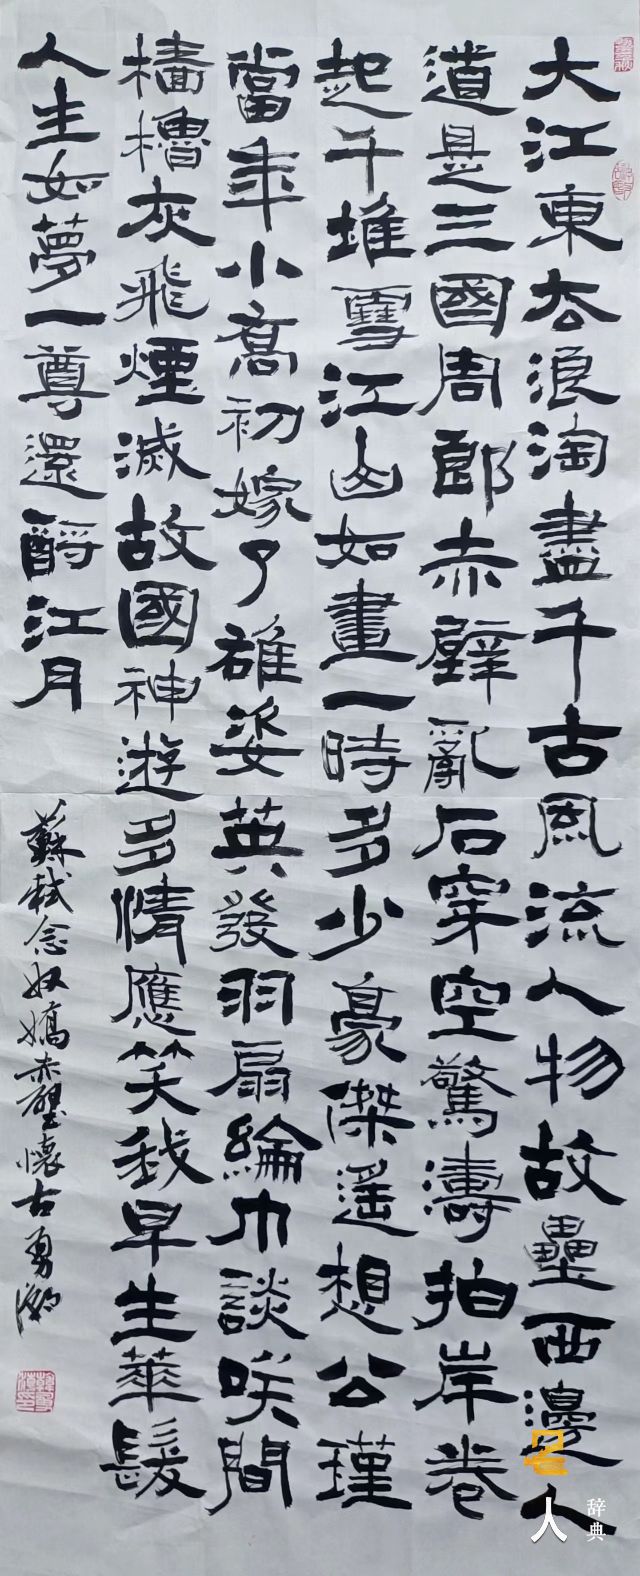 大江東去浪淘盡千古風流人物故壘西邊人
道是三國周郎赤壁亂石穿空驚濤拍岸卷
起千堆雪江山如畫一時多少豪傑遙想公瑾
當年小喬初嫁了雄姿英發羽扇綸巾談咲間
檣櫓灰飛煙滅故國神遊多情應笑我早生華髮
人生如夢一尊還酹江月
蘇軾念奴嬌赤壁懷古勇
名人辞典